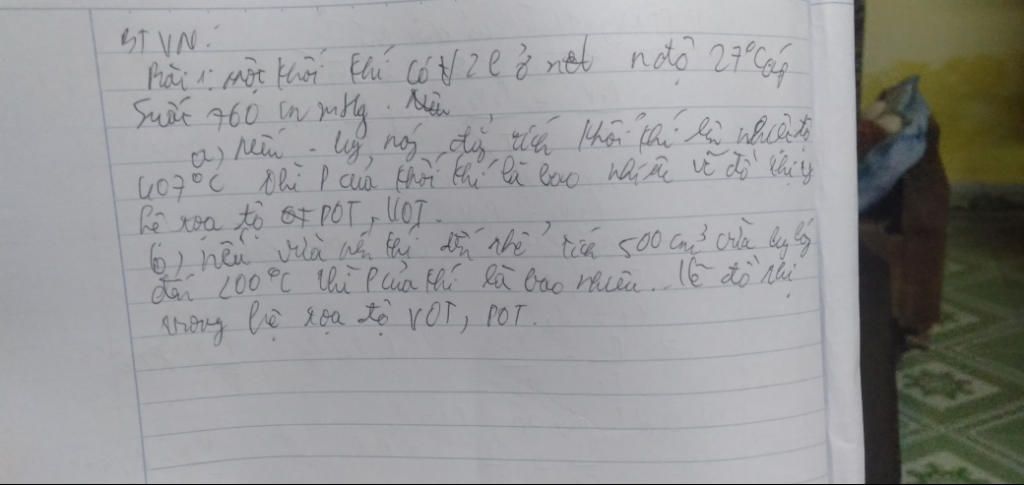 BTVN:
Bài 1: một khối khí có V 2l ở nđộ 27°C áp
Suất 760 mmHg. Nếu
a) Nếu nóng đẳng tích khối khí lên nhiệt độ
407°C thì P của khối khí là bao nhiêu vẽ đồ thị
hệ tọa độ POT, VOT.
b) nếu vừa nén khí đến thể tích 500 cm³ vừa
đến 200°C thì P của khí là bao nhiêu. Vẽ đồ thị
trong hệ tọa độ VOT, POT.